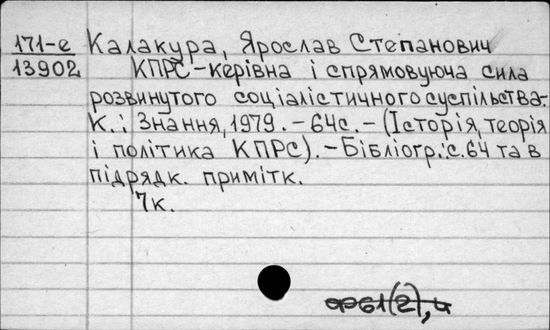 171-е Калакура, Ярослав Степанович
13902 КПРС-керівна і спрямовуюча сила
розвинутого соціалістичного суспільства.-
К.: Знання, 1979. – 64с. – (Історія, теорія
і політика КПРС). – Бібліогр.: с. 64 та в
підрядк. примітк.
7к.